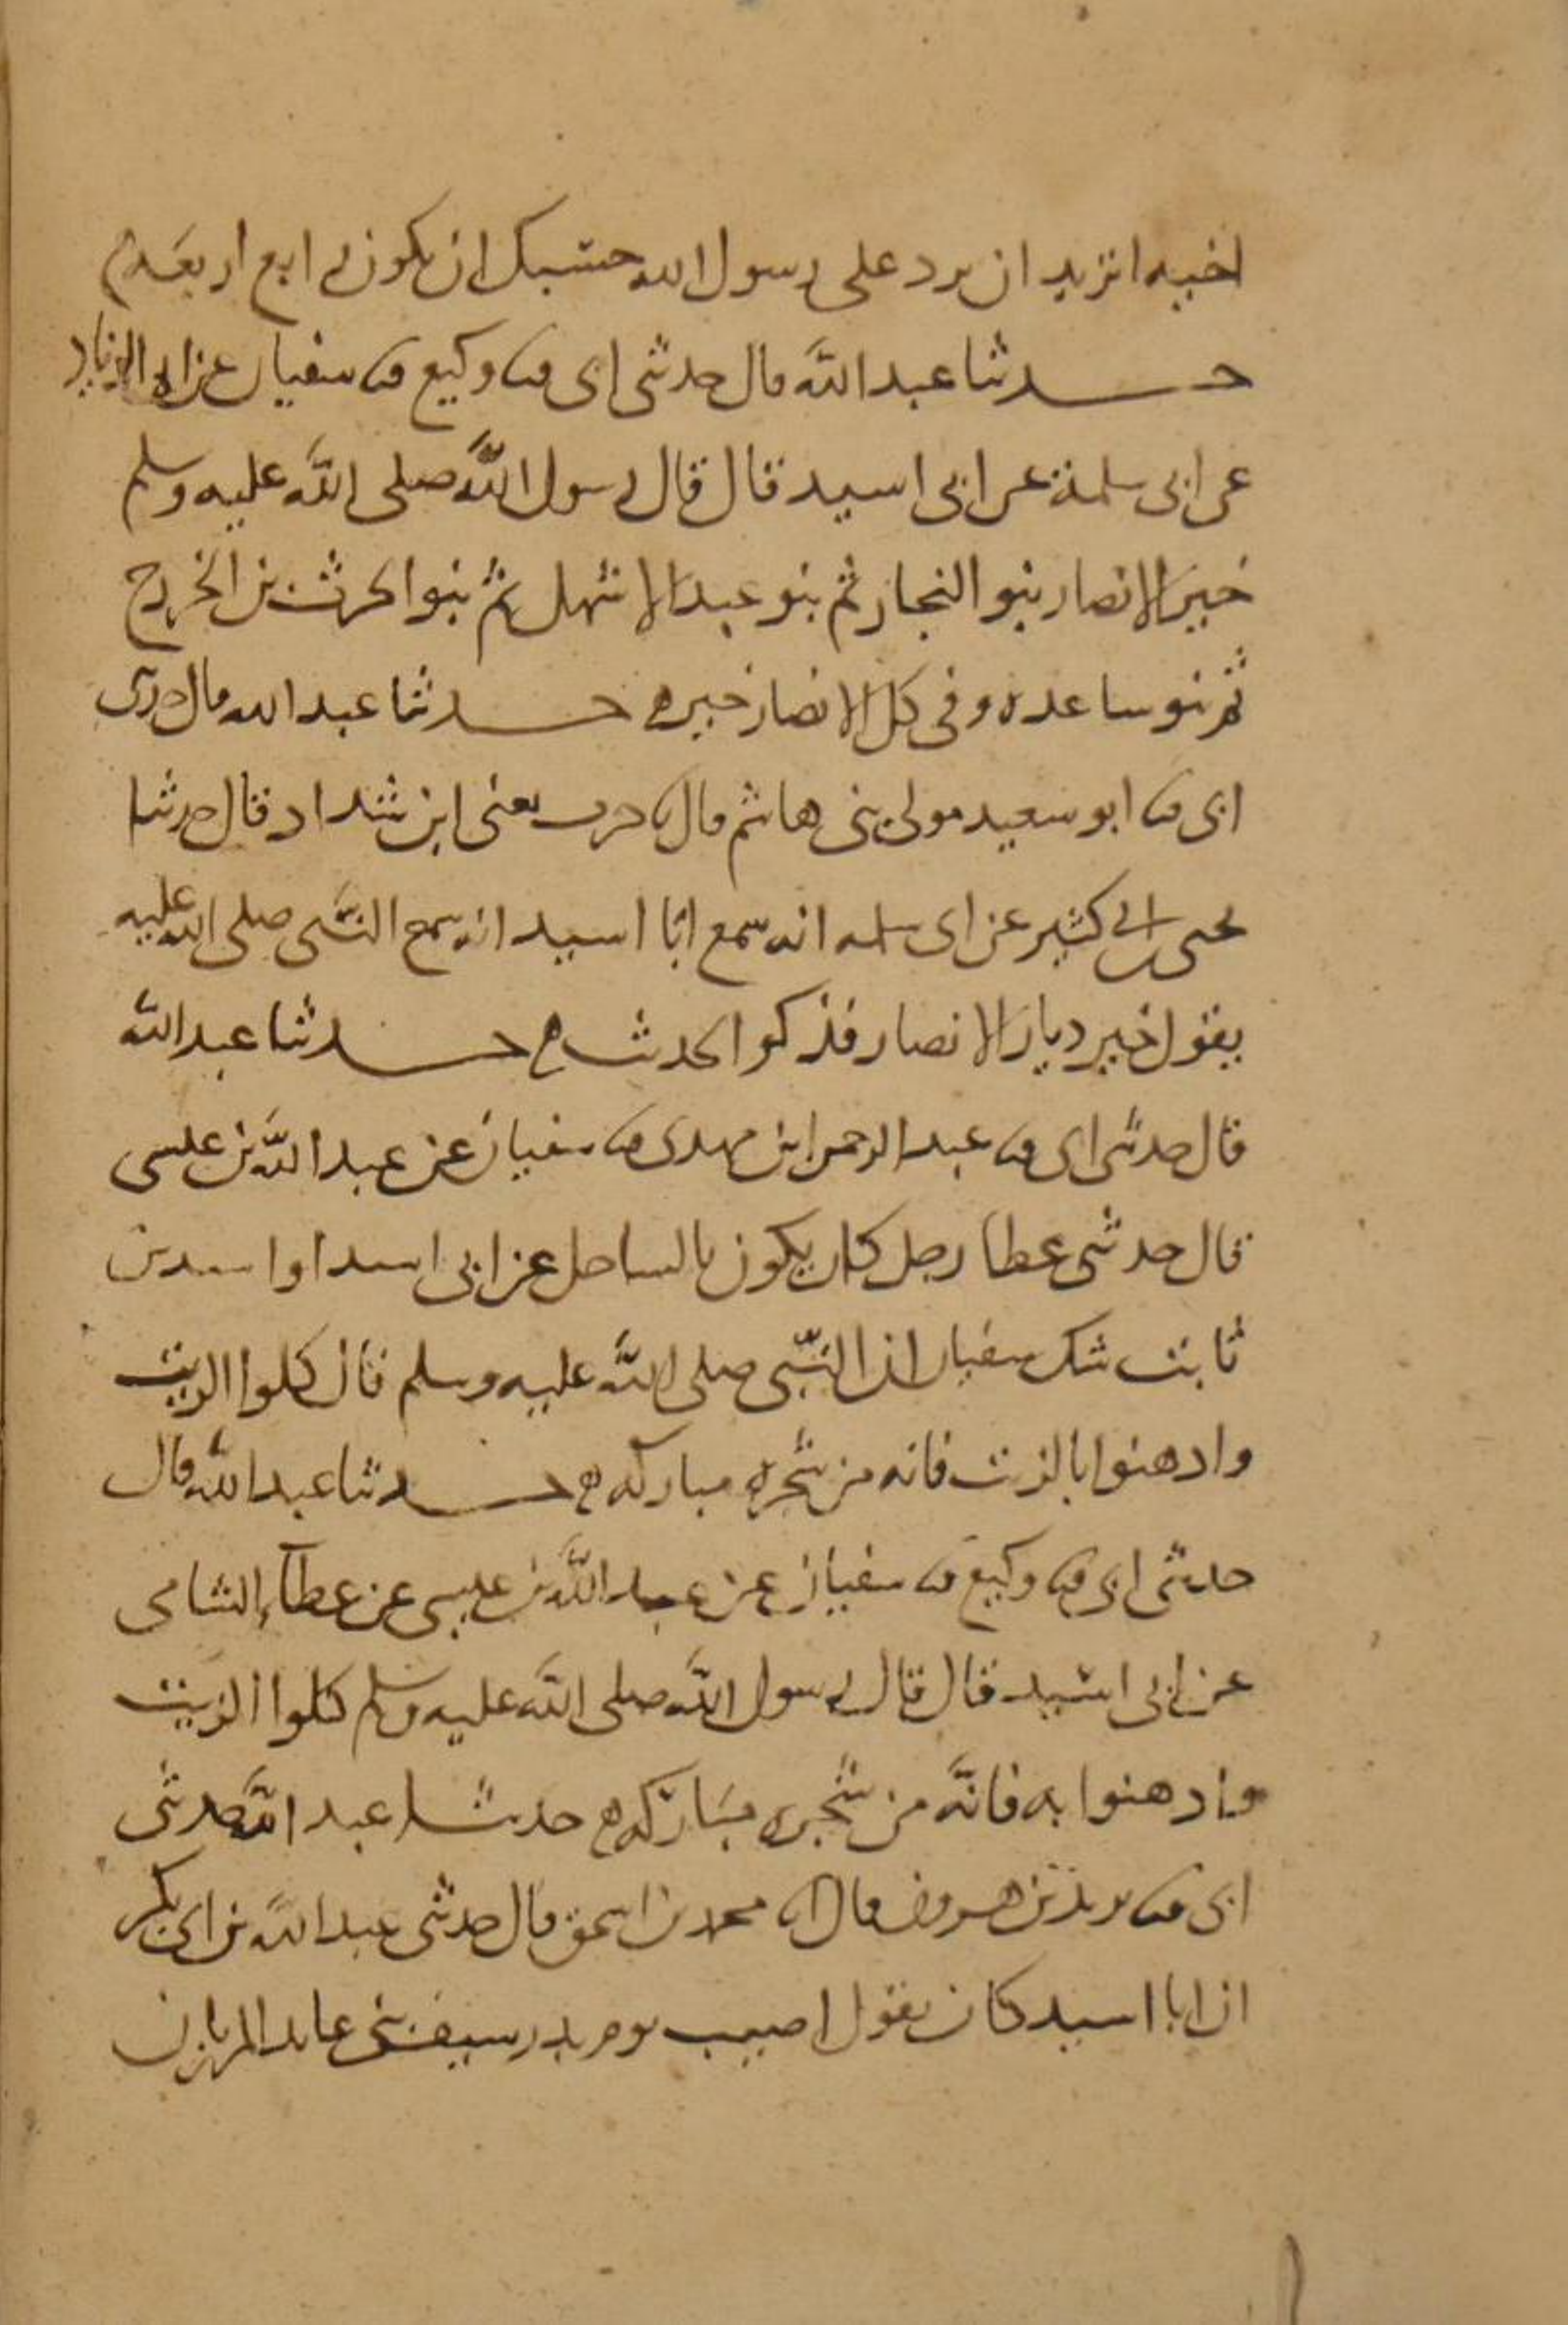 اخيه اتريد ان يرد على رسول الله حسبك ان يكون رابع اربعة
حدثنا عبد الله قال حدثني ابي ثنا وكيع ثنا سفيان عن ابي الزناد
عن ابي سلمة عن ابي اسيد قال قال رسول الله صلى الله عليه وسلم
خير الانصار بنو النجار ثم بنو عبد الاشهل ثم بنوا الحرث بن الخزرج
ثم بنو ساعده وفي كل الانصار خير حدثنا عبد الله قال حدثني
ابي ثنا ابو سعيد مولى بني هاشم قال ثنا حرب يعني ابن شداد قال حدثنا
يحيى بن ابي كثير عن ابي سلمه انه سمع ابا اسيد انه سمع النبي صلى الله عليه
يقول خير ديار الانصار فذكر الحديث حدثنا عبد الله
قال حدثني ابي ثنا عبد الرحمن ابن مهدي ثنا سفيان عن عبد الله بن عيسى
قال حدثني عطا رجل كان يكون بالساحل عن ابي اسيد او اسيد بن
ثابت شك سفيان ان النبي صلى الله عليه وسلم قال كلوا الزيت
وادهنوا بالزيت فانه من شجره مباركه حدثنا عبد الله قال
حدثني ابي ثنا وكيع ثنا سفيان عن عبد الله بن عيسى عن عطاء الشامي
عن ابي اسيد قال قال رسول الله صلى الله عليه وسلم كلوا الزيت
وادهنوا به فانه من شجره مباركه حدثنا عبد الله حدثني
ابي ثنا يزيد بن هرون قال انا محمد بن اسحق قال حدثني عبد الله بن ابي بكر
ان ابا اسيد كان يقول اصبت يوم بدر سيف بني عابد المرزبان